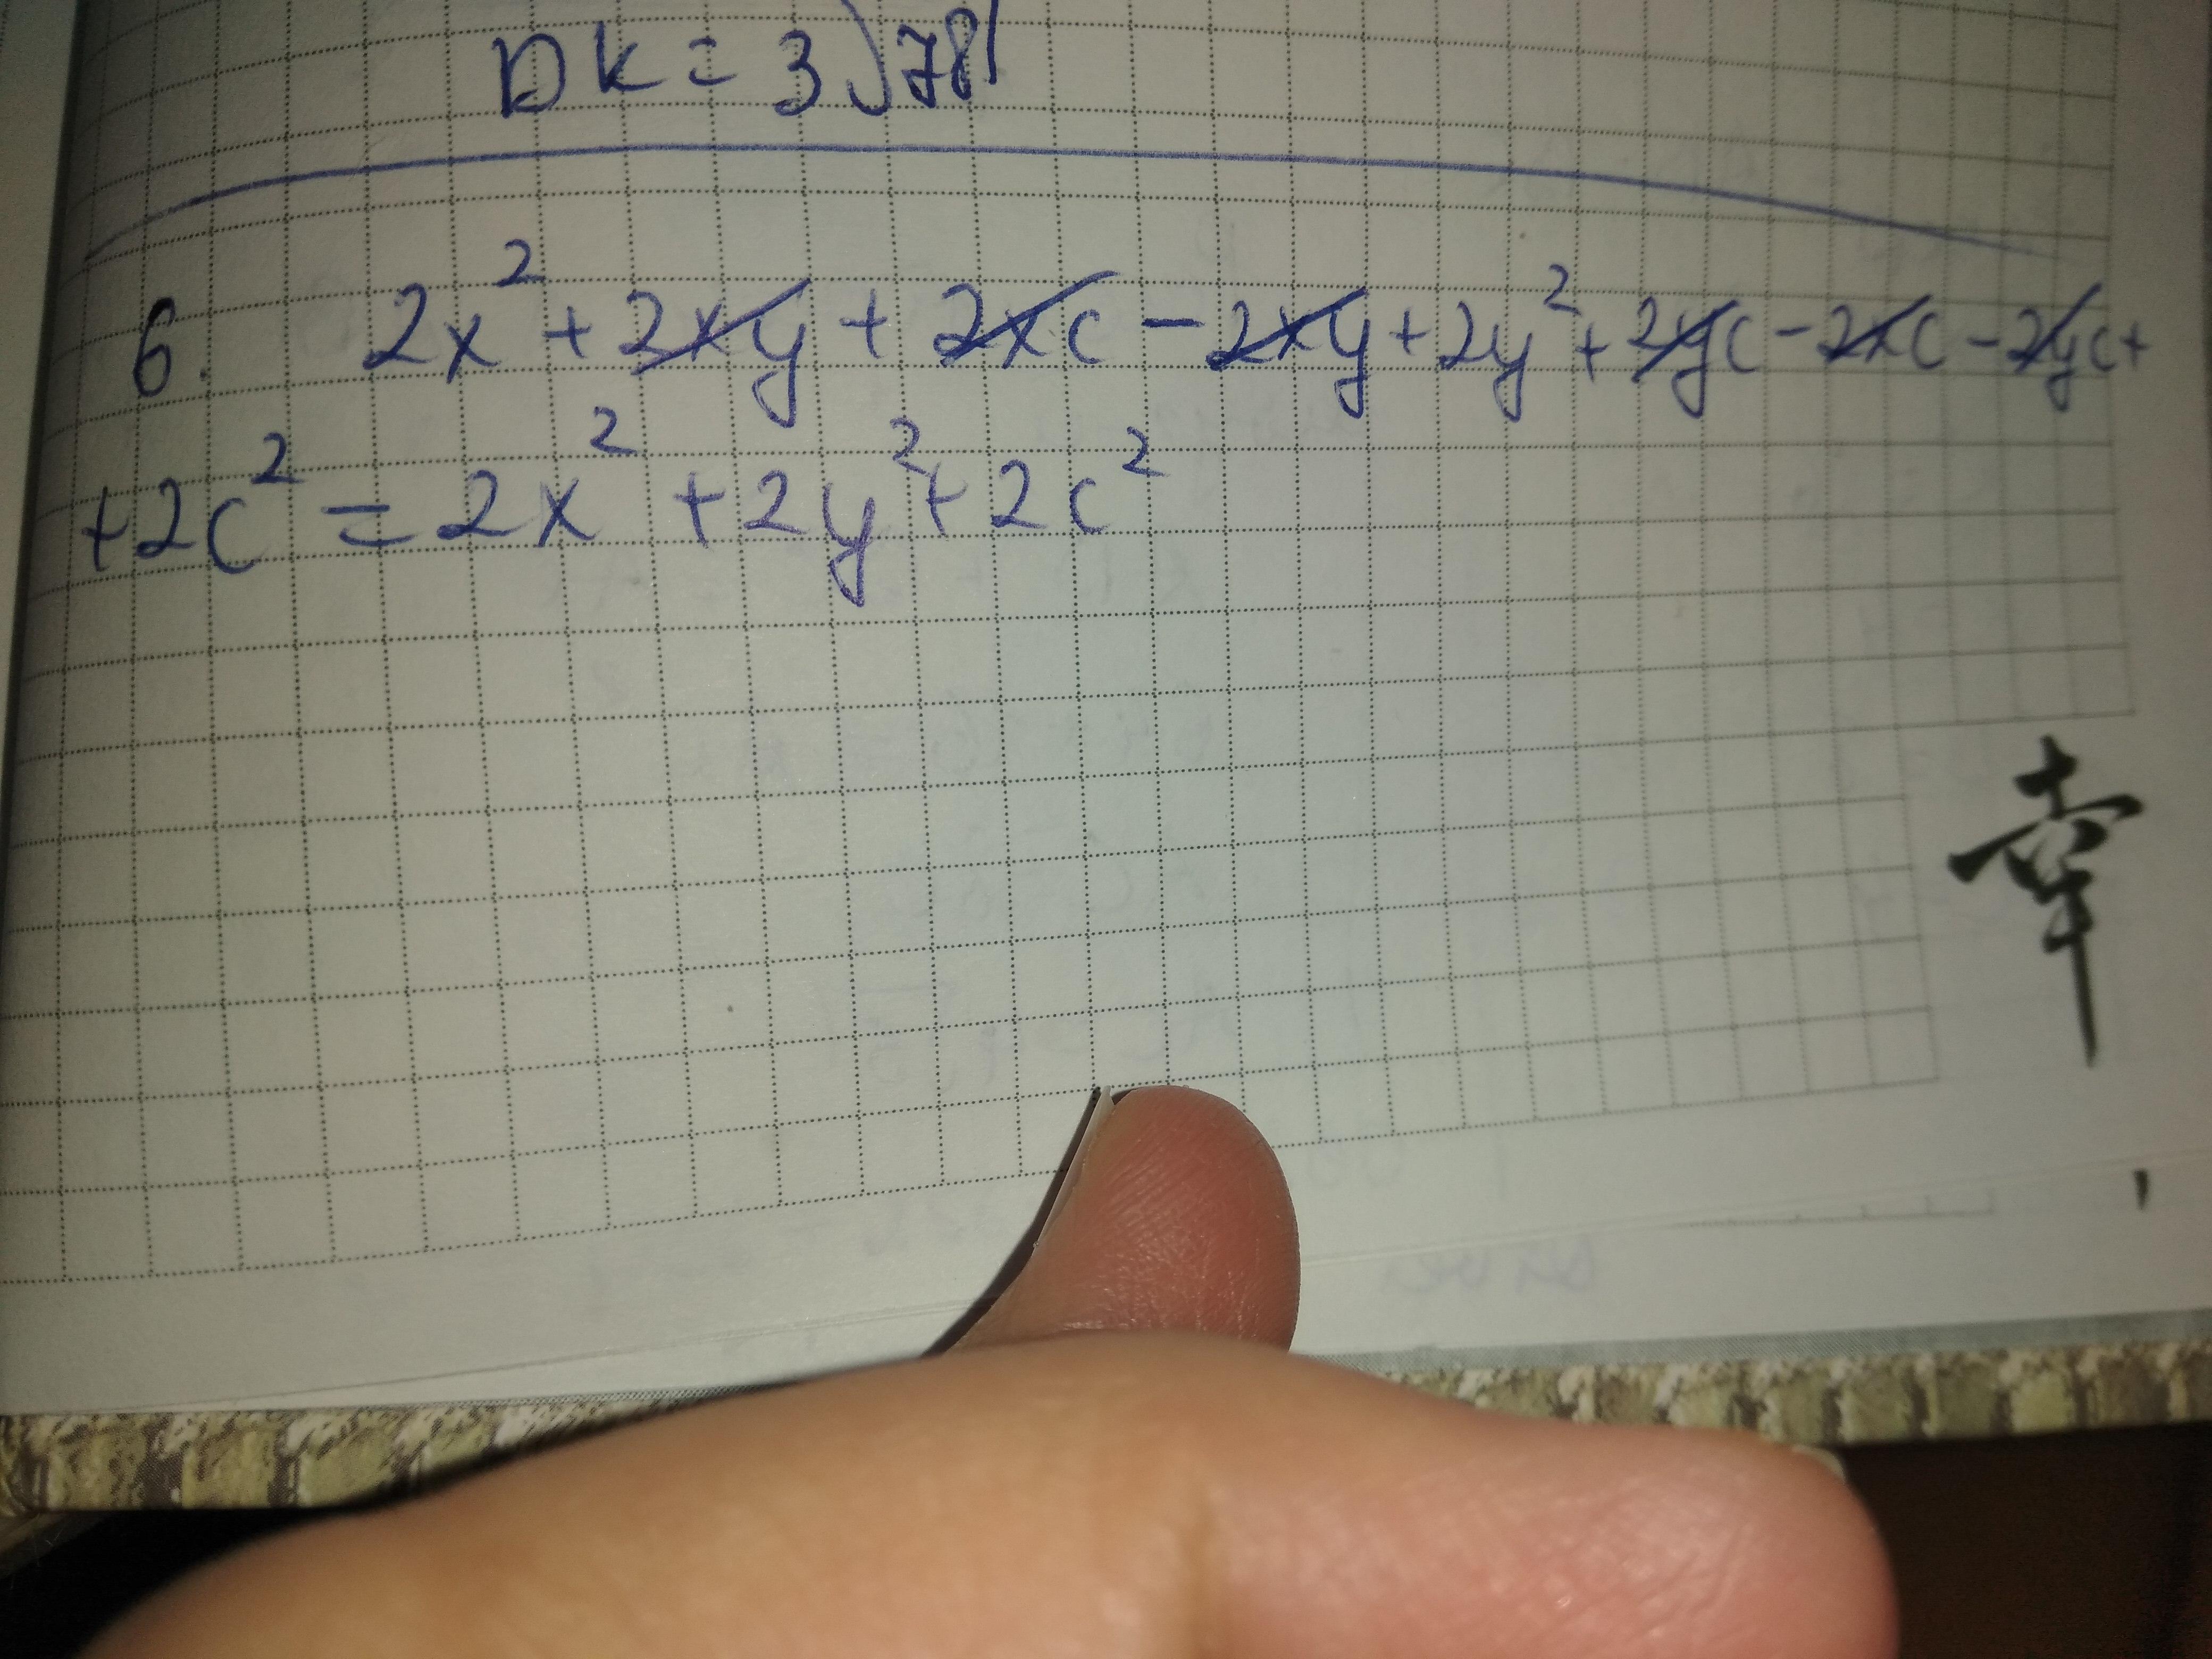 DK = 3√78
6. 2x² + 2xy + 2xc - 2xy + 2y² + 2yc - 2xc - 2yc +
+ 2c² = 2x² + 2y² + 2c²
幸